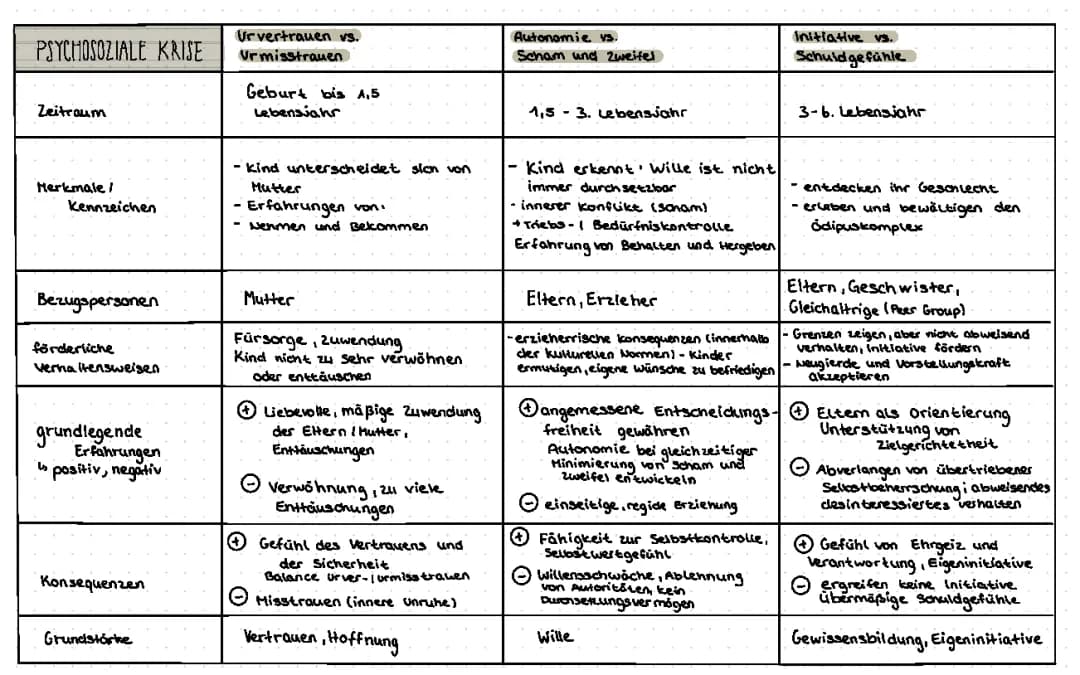 PSYCHOSOZIALE KRISE
Urvertrauen vs.
Urmisstrauen
Autonomie vs.
Scham und Zweifel
Initiative vs.
Schuldgefühle
Zeitraum
Geburt bis 1,5
Lebensjahr
1,5 - 3. Lebensjahr
3-6. Lebensjahr
Merkmale /
Kennzeichen
- Kind unterscheidet sich von
Mutter
- Erfahrungen von:
- Nehmen und Bekommen
- Kind erkennt: Wille ist nicht
immer durchsetzbar
- innerer Konflikt (Scham)
→ Triebs- / Bedürfniskontrolle
Erfahrung von Behalten und Hergeben
- entdecken ihr Geschlecht
- erleben und bewältigen den
Ödipuskomplex
Bezugspersonen
Mutter
Eltern, Erzieher
Eltern, Geschwister,
Gleichaltrige (Peer Group)
förderliche
Verhaltensweisen
Fürsorge, Zuwendung
Kind nicht zu sehr verwöhnen
oder enttäuschen
- erzieherrische Konsequenzen (innerhalb
der kulturellen Normen) - Kinder
ermutigen, eigene Wünsche zu befriedigen
- Grenzen zeigen, aber nicht abweisend
verhalten, Initiative fördern
- Neugierde und Vorstellungskraft
akzeptieren
grundlegende
Erfahrungen
↳ positiv, negativ
⊕ Liebevolle, mäßige Zuwendung
der Eltern / Mutter,
Enttäuschungen
⊖ Verwöhnung, zu viele
Enttäuschungen
⊕ angemessene Entscheidungs-
freiheit gewähren
Autonomie bei gleichzeitiger
Minimierung von Scham und
Zweifel entwickeln
⊖ einseitige, regide Erziehung
⊕ Eltern als Orientierung
Unterstützung von
Zielgerichtetheit
⊖ Abverlangen von übertriebener
Selbstbeherrschung; abweisendes
desinteressiertes Verhalten
Konsequenzen
⊕ Gefühl des Vertrauens und
der Sicherheit
Balance Urver- / Urmisstrauen
⊖ Misstrauen (innere Unruhe)
⊕ Fähigkeit zur Selbstkontrolle,
Selbstwertgefühl
⊖ Willensschwäche, Ablehnung
von Autoritäten, kein
Durchsetzungsvermögen
⊕ Gefühl von Ehrgeiz und
Verantwortung, Eigeninitiative
⊖ ergreifen keine Initiative
übermäßige Schuldgefühle
Grundstärke
Vertrauen, Hoffnung
Wille
Gewissensbildung, Eigeninitiative